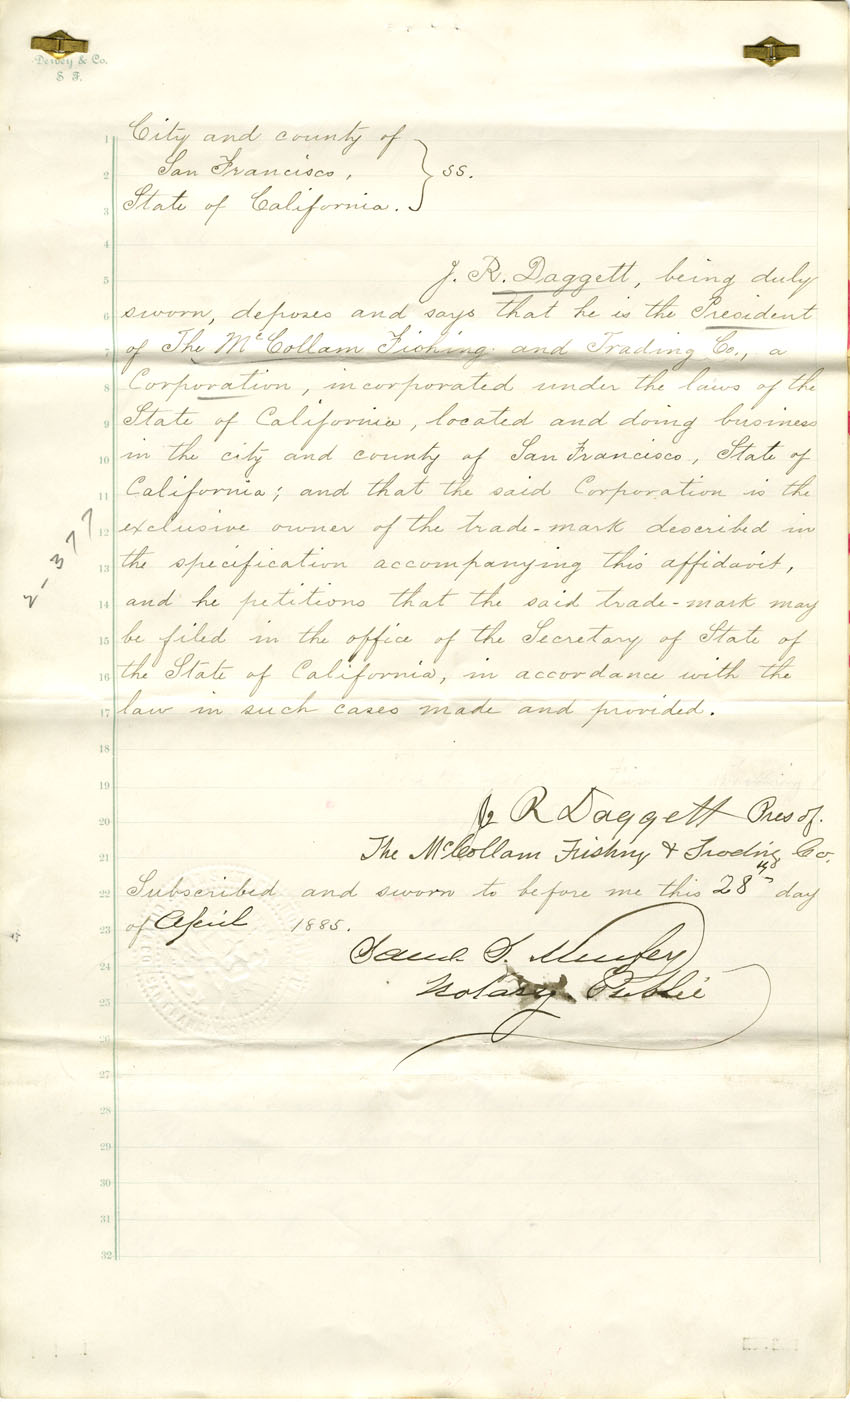 Dewey & Co.
S F.
1 City and county of
2 San Francisco, } ss.
3 State of California.
4
5 J. R. Daggett, being duly
6 sworn, deposes and says that he is the President
7 of The McCollam Fishing and Trading Co., a
8 Corporation, incorporated under the laws of the
9 State of California, located and doing business
10 in the city and county of San Francisco, State of
11 California; and that the said Corporation is the
12 exclusive owner of the trade-mark described in
13 the specification accompanying this affidavit,
14 and he petitions that the said trade-mark may
15 be filed in the office of the Secretary of State of
16 the State of California, in accordance with the
17 law in such cases made and provided.
18
19
20 J R Daggett Pres of.
21 The McCollam Fishing & Trading Co.
22 Subscribed and sworn to before me this 28th day
23 of April 1885.
24
25 Notary Public
26
27
28
29
30
31
32
2-377